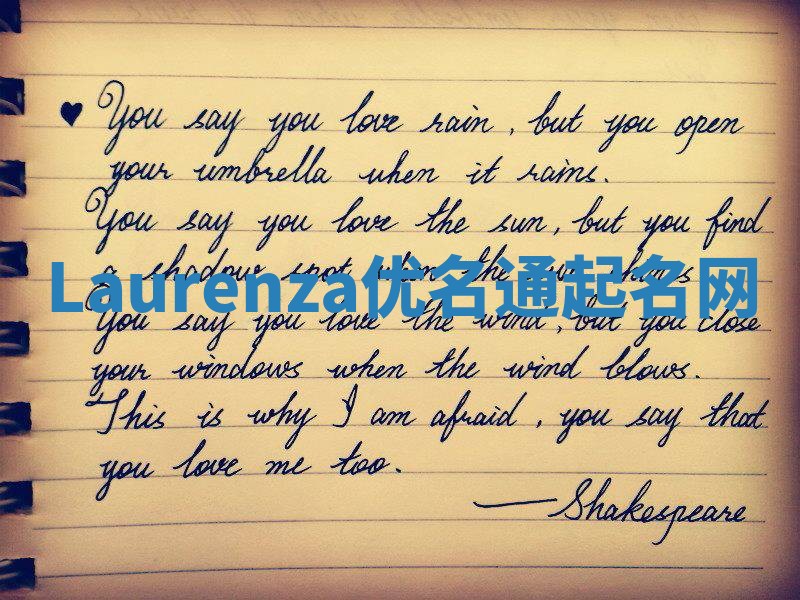 You say you love rain, but you open
your umbrella when it rains.
You say you love the sun, but you find
a shadow spot when the sun shines
Laurenza优名通起名网
You say you love the wind, but you close
your windows when the wind blows.
This is why I am afraid, you say that
you love me too.
—Shakespeare